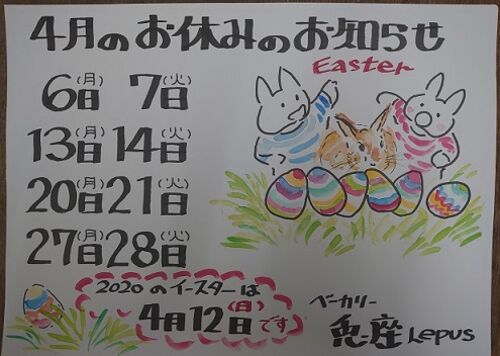 4月のお休みのお知らせ
Easter
6日(月) 7日(火)
13日(月) 14日(火)
20日(月) 21日(火)
27日(月) 28日(火)
2020のイースターは
4月12日(日)です
ベーカリー
兎座 Lepus